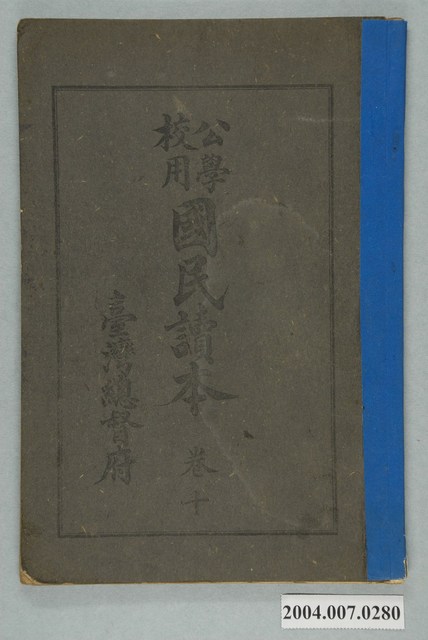 公學
校用
國民讀本
卷十
臺灣總督府
2004.007.0280